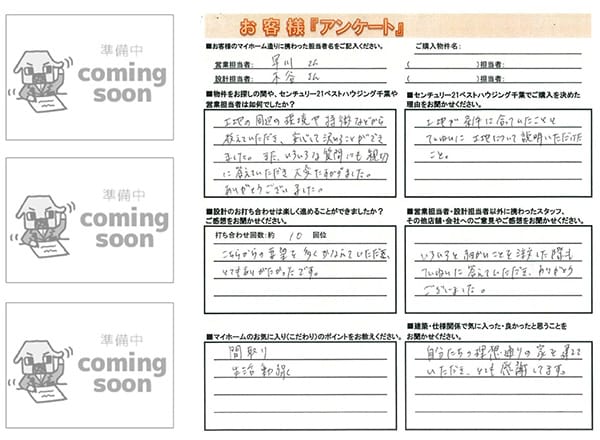 準備中
coming
soon
準備中
coming
soon
準備中
coming
soon
お客様『アンケート』
■お客様のマイホーム造りに携わった担当者名をご記入ください。
営業担当者: 早川 さん
設計担当者: 木谷 さん
ご購入物件名:
( )担当者:
( )担当者:
■物件をお探しの間や、センチュリー21ベストハウジング千葉や
営業担当者は如何でしたか?
土地の周辺の環境や特徴などから
教えていただき、安心して決めることができ
ました。また、いろいろな質問にも親切
に答えていただき大変たすかりました。
ありがとうございました。
■センチュリー21ベストハウジング千葉でご購入を決めた
理由をお聞かせください。
土地が条件に合っていたことと
ていねいに土地について説明いただけた
こと。
■設計のお打ち合わせは楽しく進めることができましたか?
ご感想をお聞かせください。
打ち合わせ回数:約 10 回位
こちらからの要望を多くかなえていただき、
とてもありがたかったです。
■営業担当者・設計担当者以外に携わったスタッフ、
その他店舗・会社へのご意見やご感想をお聞かせください。
いろいろと細かいことを注文した際も
ていねいに答えていただき、ありがとう
ございました。
■マイホームのお気に入り(こだわり)のポイントをお教えください。
間取り
生活動線
■建築・仕様関係で気に入った・良かったと思うことを
お聞かせください。
自分たちの理想通りの家を建てて
いただき、とても感謝してます。